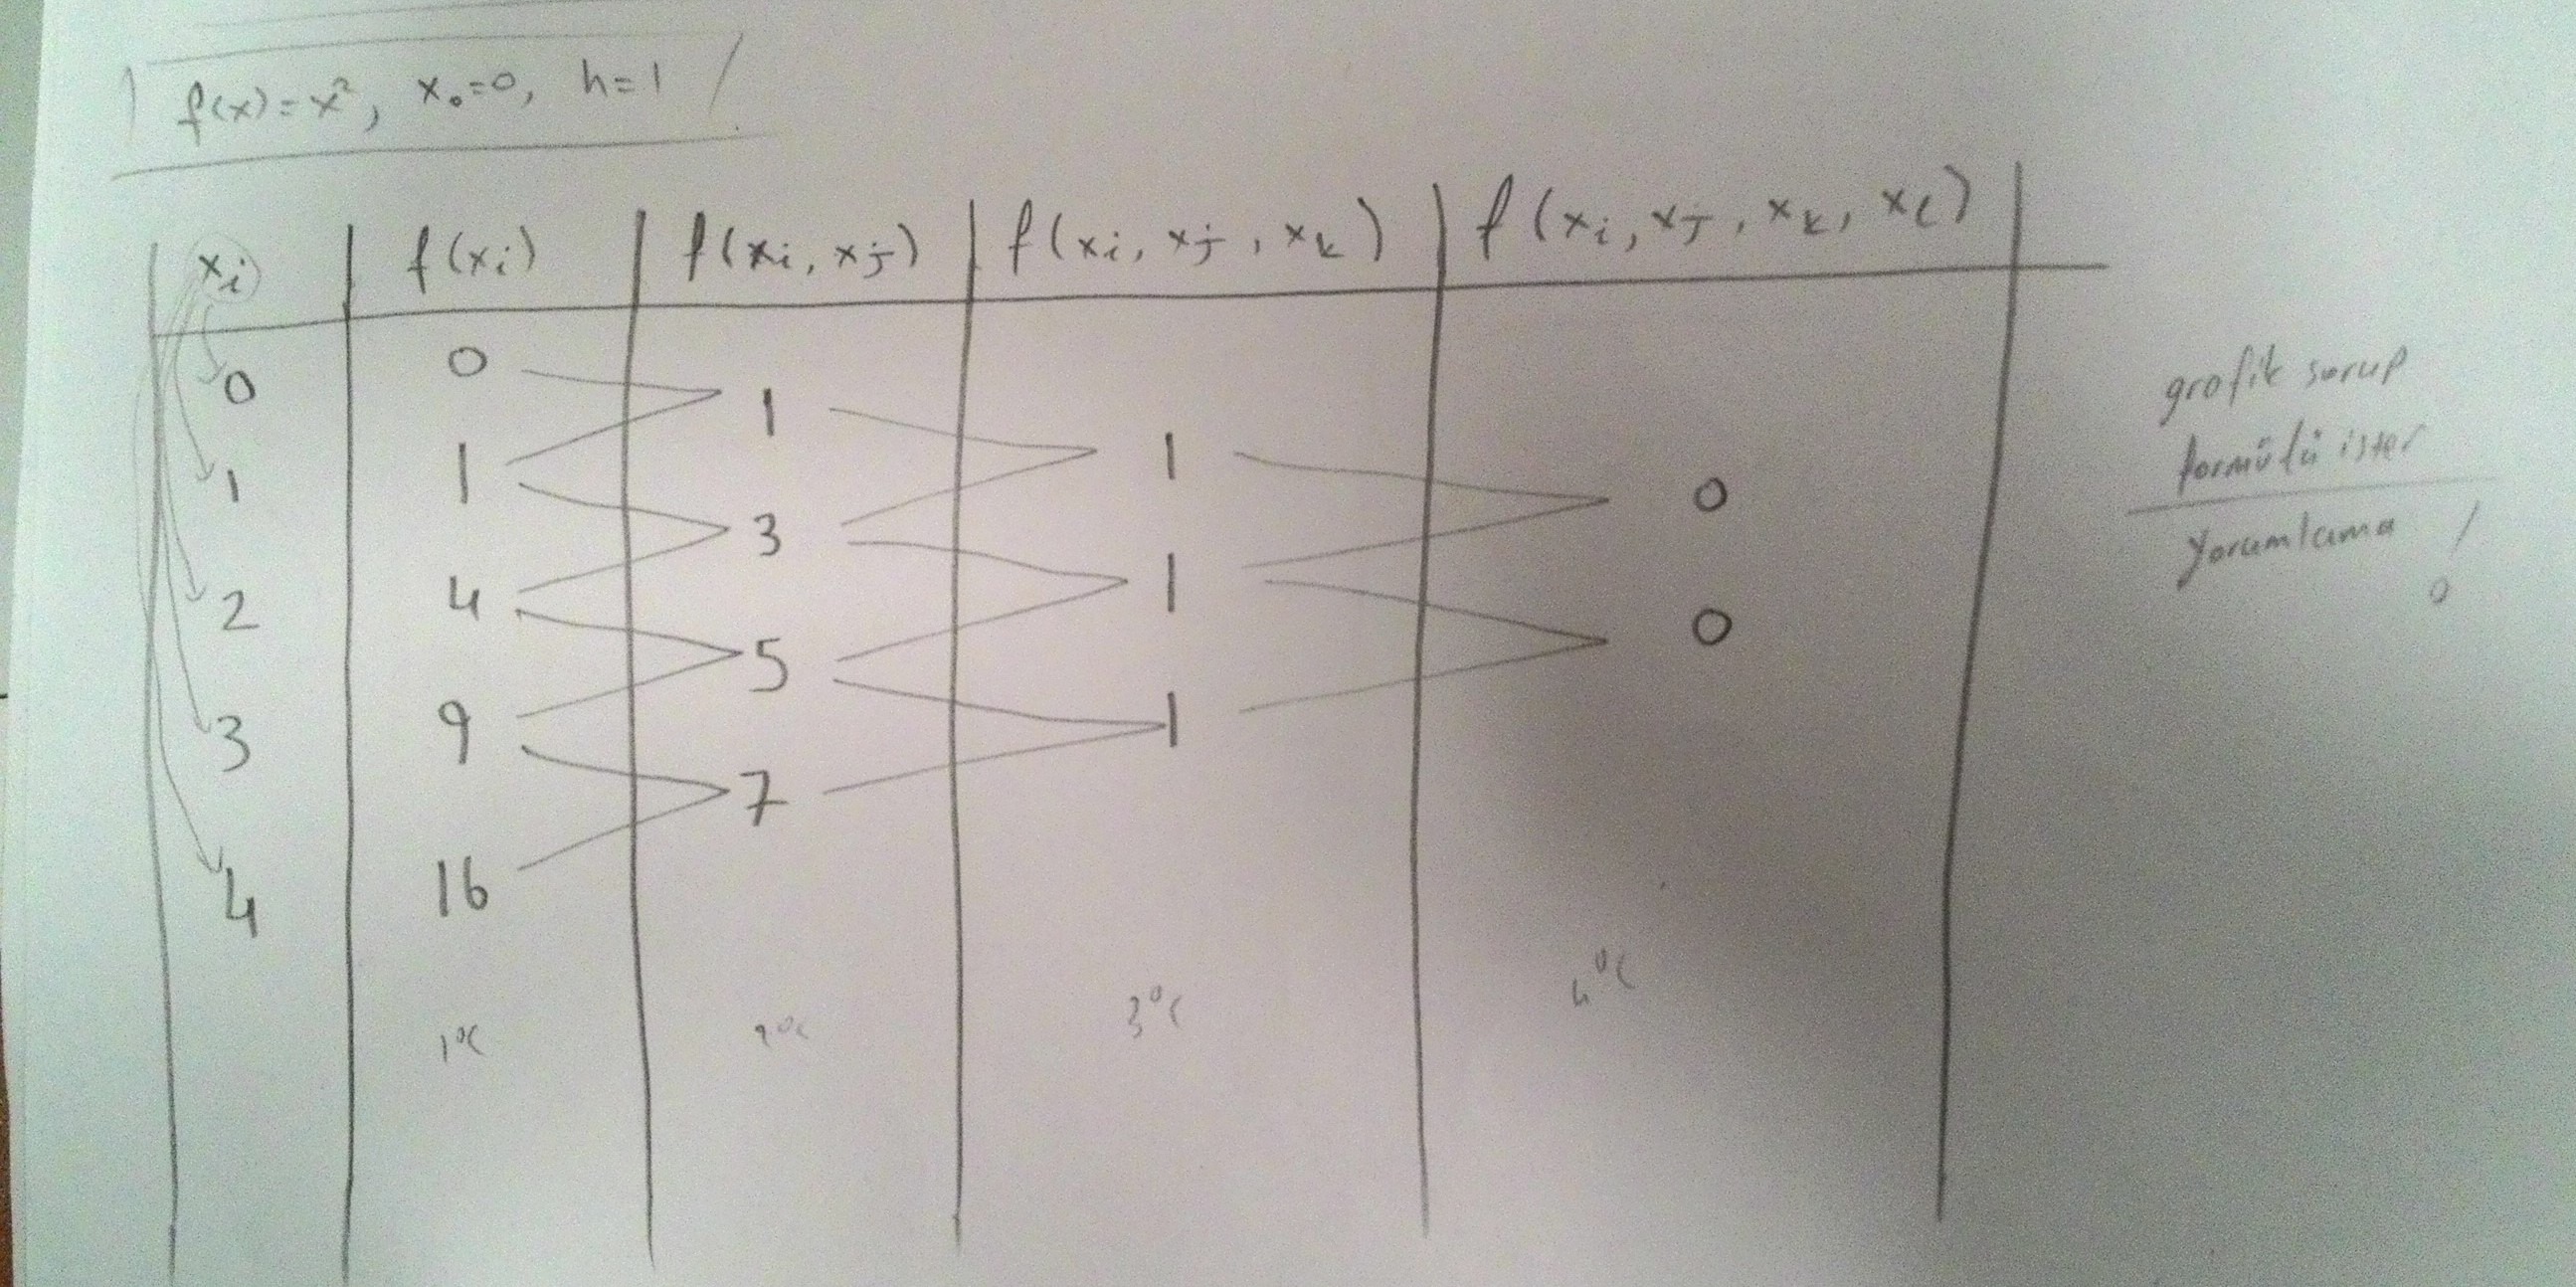 f(x)=x², x₀=0, h=1
xi f(xi) f(xi, xj) f(xi, xj, xk) f(xi, xj, xk, xl)
0 0
1
1 1 1
3 0
2 4 1
5 0
3 9 1
7
4 16
grafik sorup
formülü ister
Yorumlama !